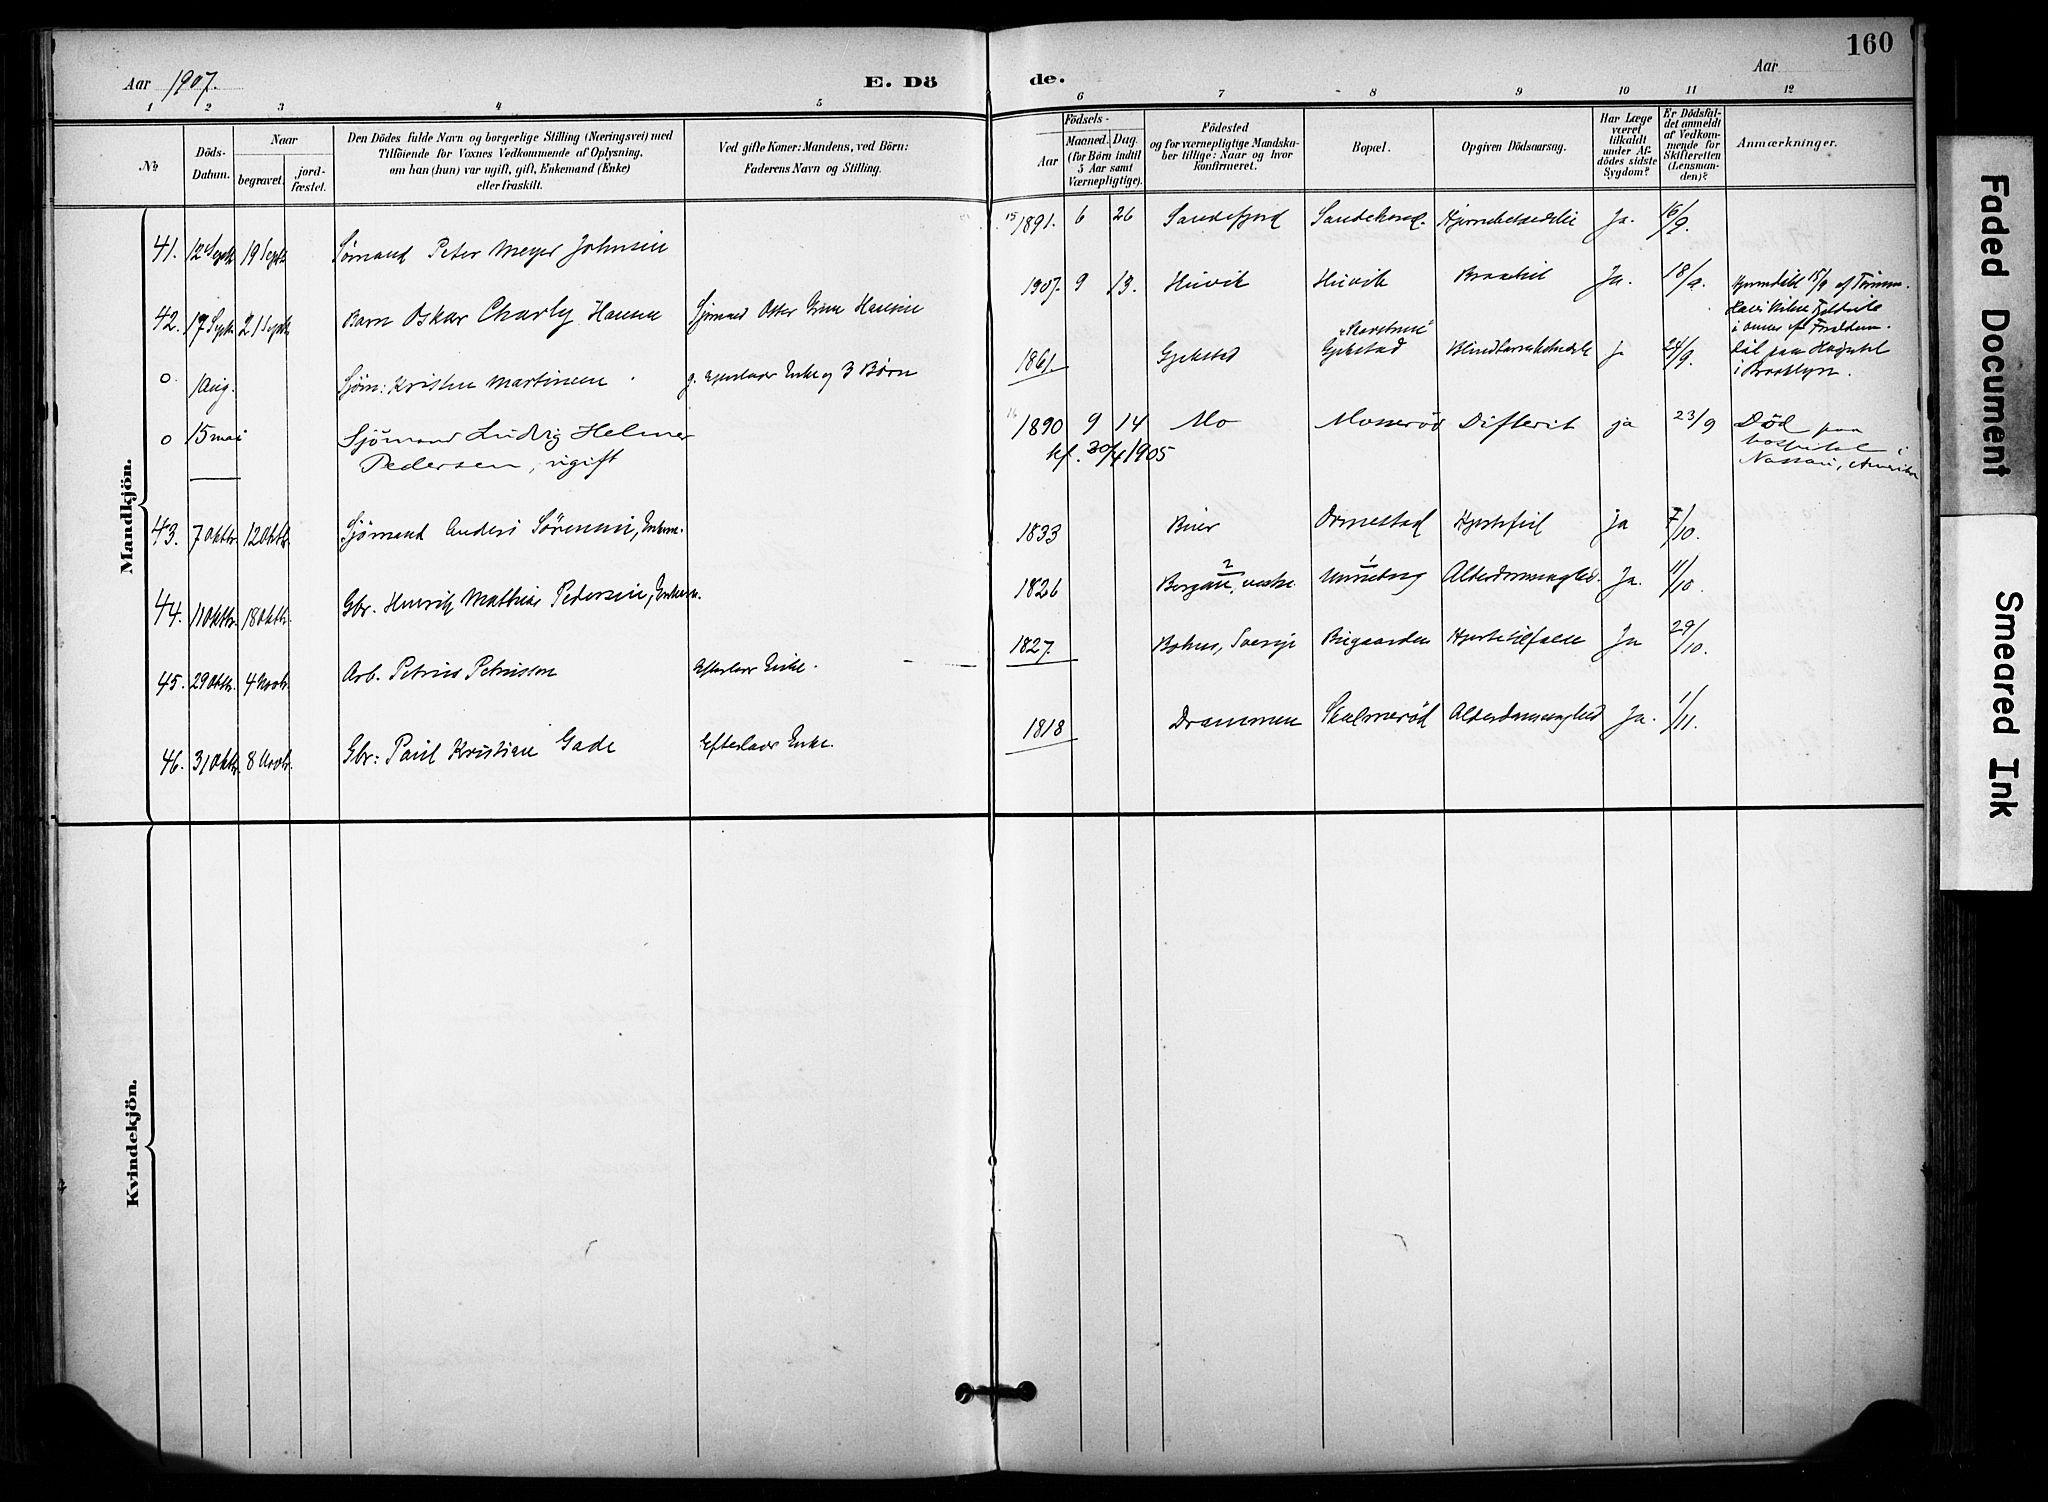 160
Aar 1907.
E. Dö de.
Aar
1 2 3 4 5 6 7 8 9 10 11 12
No
Döds-
Datum.
Naar
begravet.
jord-
fæstet.
Den Dödes fulde Navn og borgerlige Stilling (Næringsvei) med
Tilföiende for Voxnes Vedkommende af Oplysning,
om han (hun) var ugift, gift, Enkemand (Enke)
eller fraskilt.
Ved gifte Koner: Mandens, ved Börn:
Faderens Navn og Stilling.
Födsels-
Aar
Maaned. Dag.
(for Börn indtil
5 Aar samt
Værnepligtige).
Födested
og for værnepligtige Mandska-
ber tillige: Naar og hvor
konfirmeret.
Bopæl.
Opgiven Dödsaarsag.
Har Læge
været
tilkaldt
under Af-
dödes sidste
Sygdom?
Er Dödsfal-
det anmeldt
af Vedkom-
mende for
Skifteretten
(Lensman-
den)?
Anmærkninger.
Mandkjön.
41. 12 Septr 19 Septr Sømand Peter Meyer Johnsen 15 1891. 6 26 Sandefjord Ja. 16/9.
42. 17 Septr 21 Septr Barn Oskar Charly Hansen Sjømand Hansen 1907. 9 13. Huvik Huvik Ja. 18/9.
o 1 Aug. Sjøm: Kristen Martinsen g. Efterlader Enke og 3 Børn 1861. Gjekstad Gjekstad Ja 24/9. Død paa Hospital
i Brooklyn.
o 15 mai Sjømand Ludvig Helmer
Pedersen, ugift 16 1890 9 14 Mo Moserød Difterit ja 23/9 Død paa
hospital i
Nassau, Amerika
kf. 30/4 1905
43. 7 Oktbr. 12 Oktbr. Sjømand Anders Sørensen, Enkem. 1833 Buer Ormestad Hjertefeil ja 7/10.
44. 11 Oktbr. 18 Oktbr. Gbr. Henrik Mathias Pedersen, Enkem. 1826 Bergan, Unneberg Alderdomssvaghed. Ja. 11/10.
45. 29 Oktbr. 4 Novbr. Arb. Petrus Petrusson Efterlader Enke. 1827. Bohus, Sverige Bugaarden Hjertetilfælde Ja 29/10.
46. 31 Oktbr. 8 Novbr. Gbr: Paul Kristian Gade Efterlader Enke. 1818 Drammen Skolmerød Alderdomssvaghed Ja. 1/11.
Kvindekjön.
Faded Document
Smeared Ink